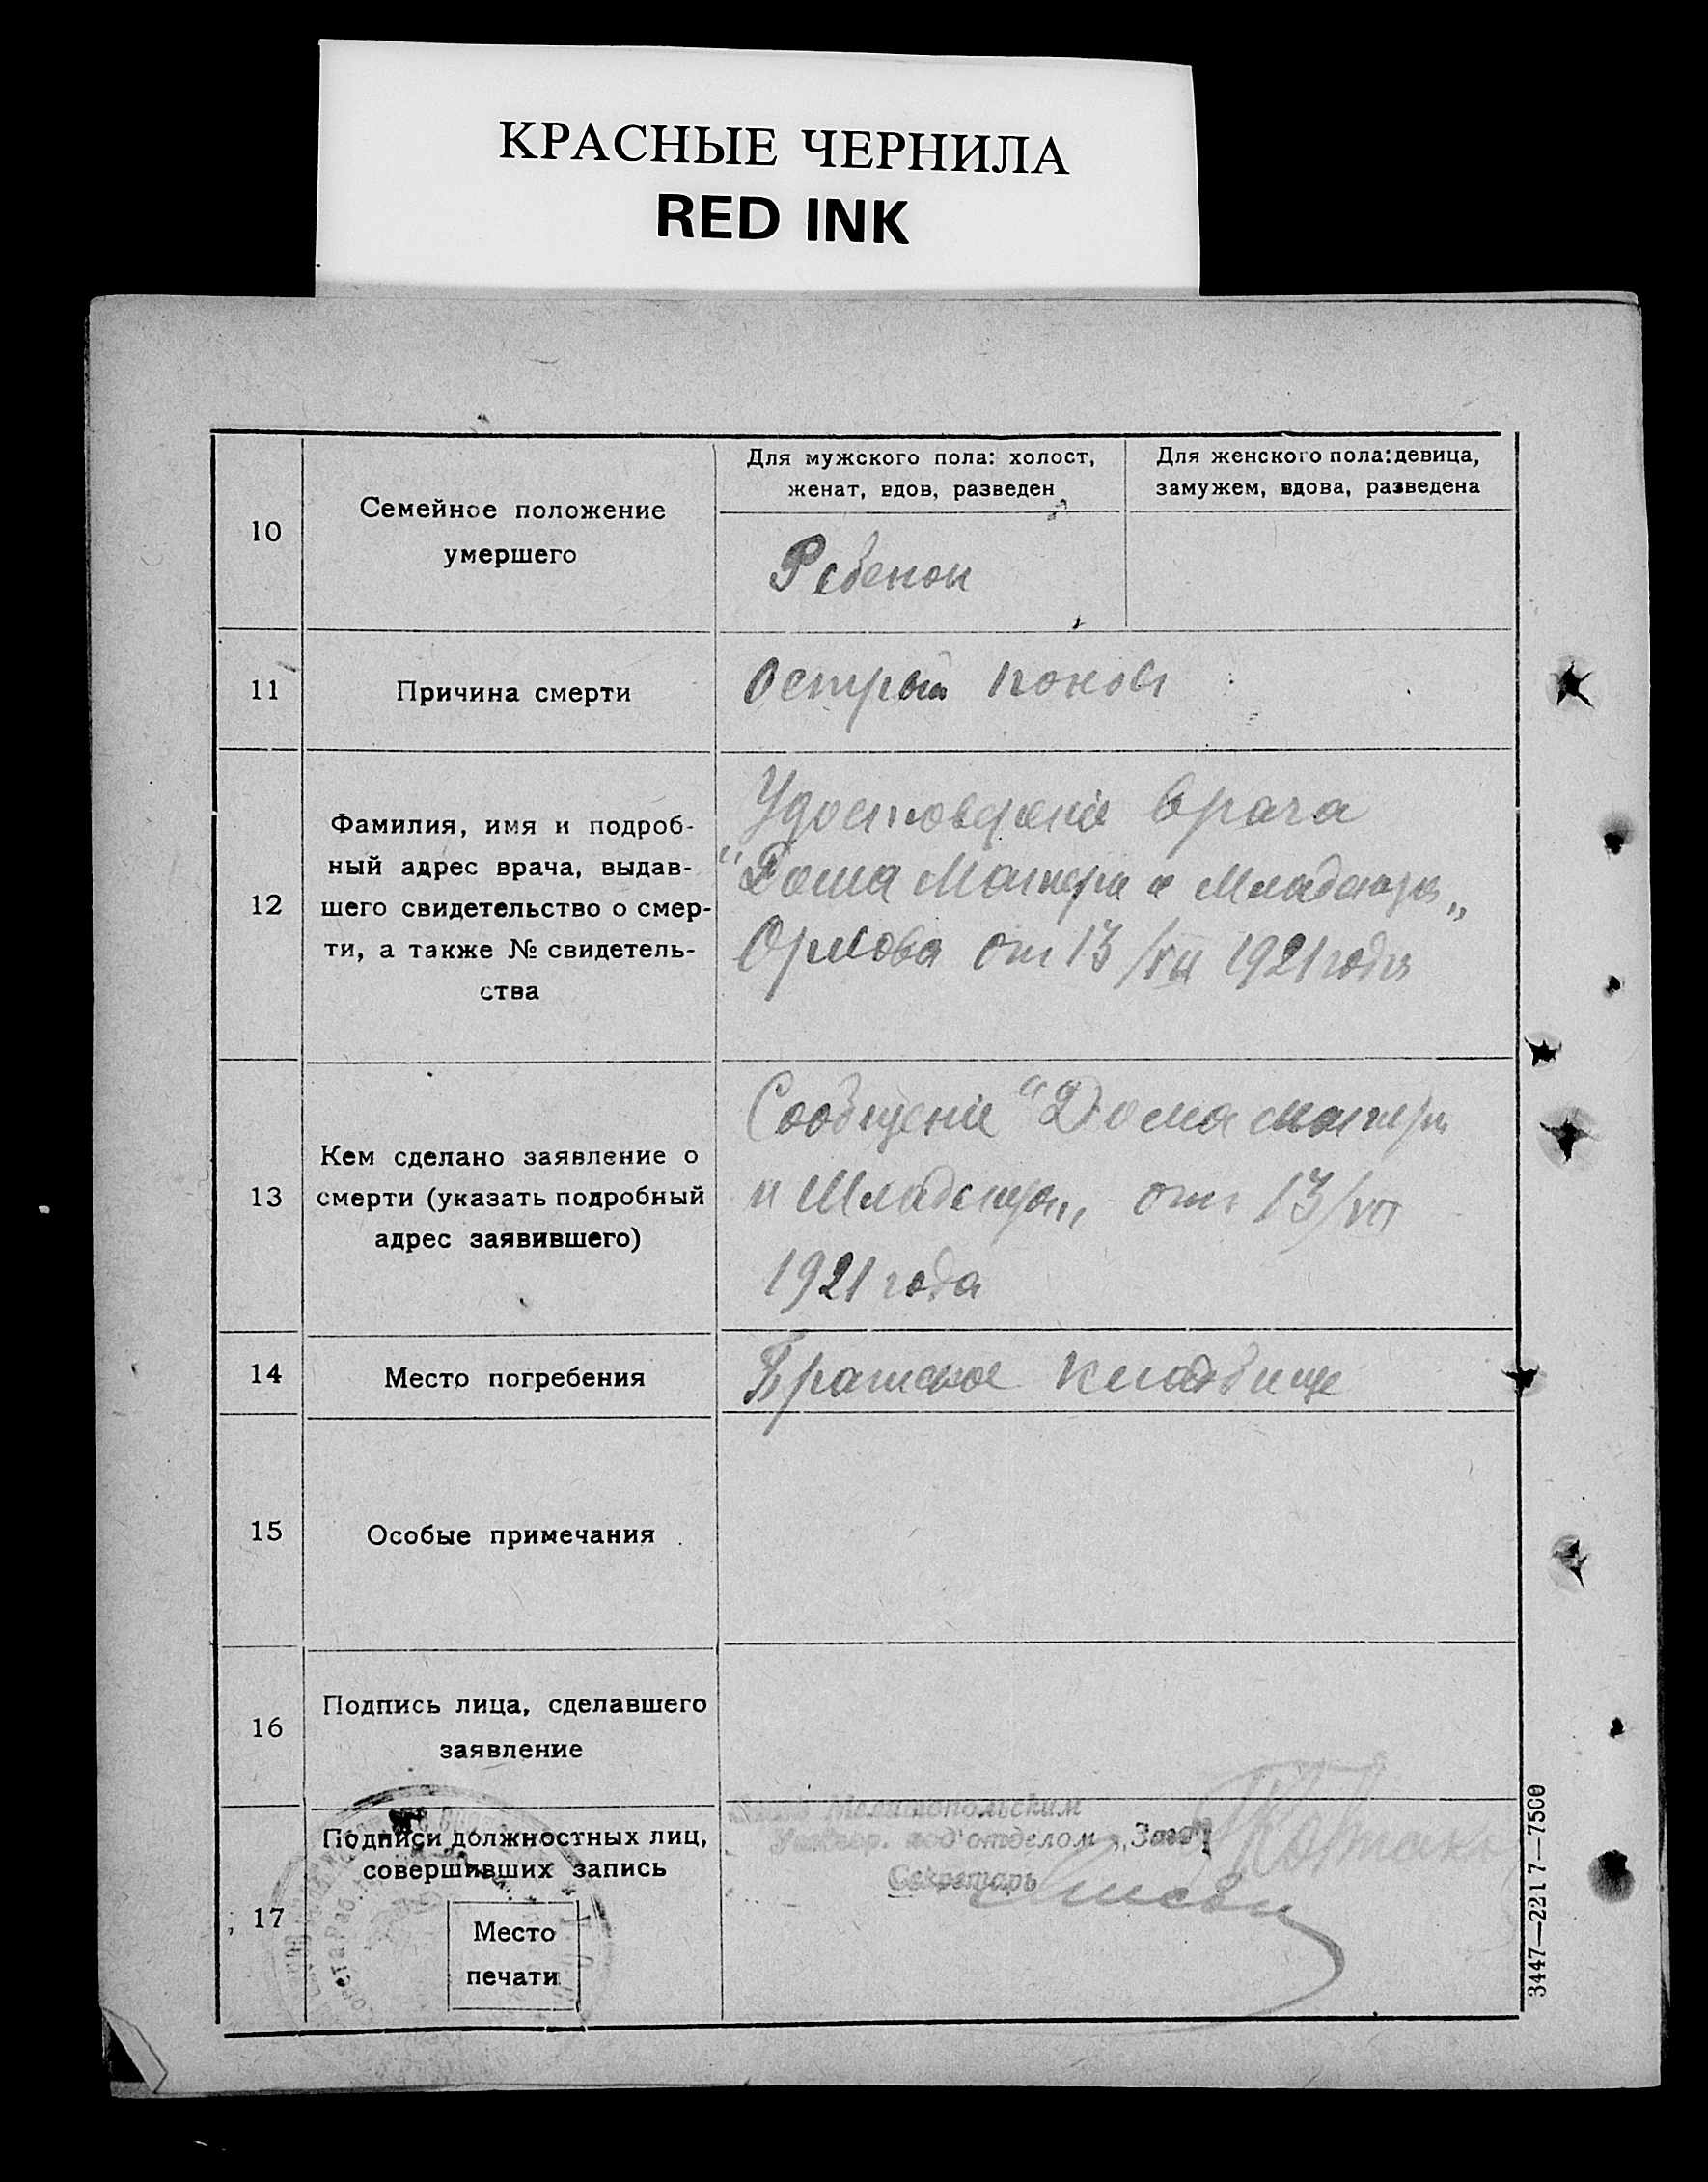 КРАСНЫЕ ЧЕРНИЛА
RED INK
10
Семейное положение
умершего
Для мужского пола: холост,
женат, вдов, разведен
Для женского пола: девица,
замужем, вдова, разведена
Ребенок
11
Причина смерти
Острый понос
12
Фамилия, имя и подроб-
ный адрес врача, выдав-
шего свидетельство о смер-
ти, а также № свидетель-
ства
Удостоверение врача
"Дома Матери и Младенца„
Орлова от 13/VII 1921 года
13
Кем сделано заявление о
смерти (указать подробный
адрес заявившего)
Сообщение "Дома матери
и Младенца„ от 13/VII
1921 года
14
Место погребения
Братское кладбище
15
Особые примечания
16
Подпись лица, сделавшего
заявление
17
Подписи должностных лиц,
совершивших запись
Место
печати
Мелитопольским
под'отделом „Загс"
Секретарь
3447—2217—7500